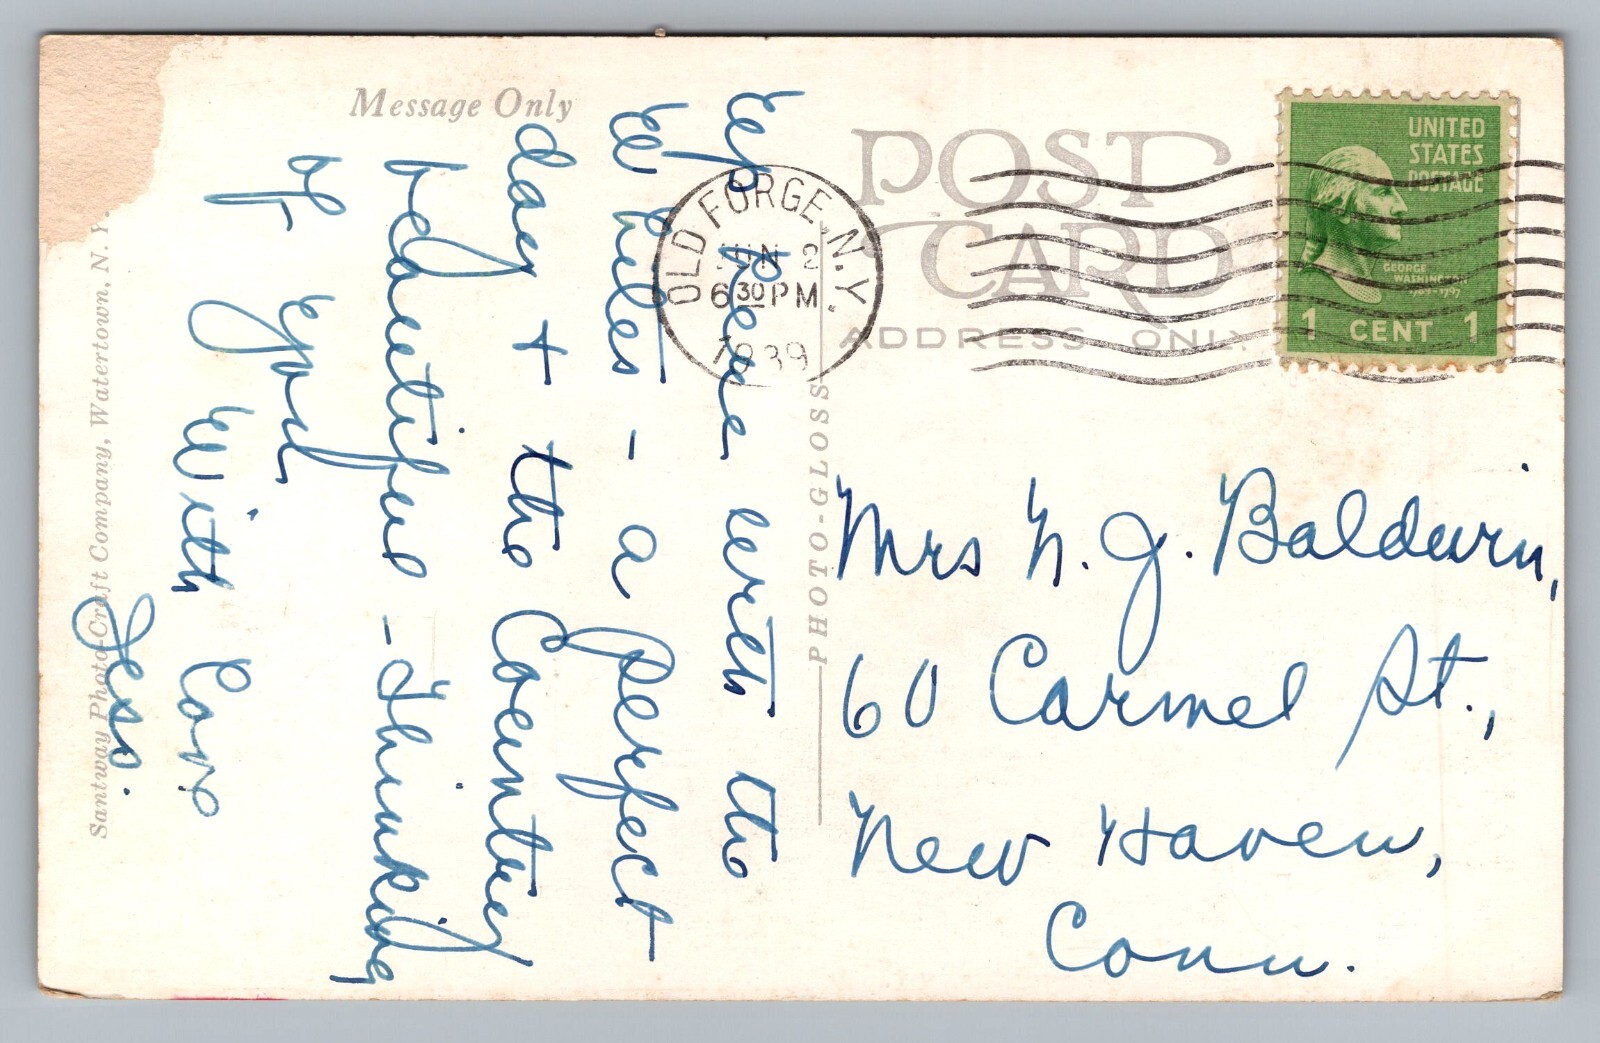 Message Only
Up here with the
Whites - a perfect
day + the Country
beautiful - Thinking
of you
With Love
Jess.
Santway Photo-Craft Company, Watertown, N. Y.
POST
CARD
ADDRESS ONLY
PHOTO-GLOSS
OLD FORGE, N.Y.
JUN 2
6 30 PM
1939
UNITED
STATES
POSTAGE
GEORGE
WASHINGTON
1 CENT 1
Mrs N. J. Baldwin,
60 Carmel St.,
New Haven,
Conn.